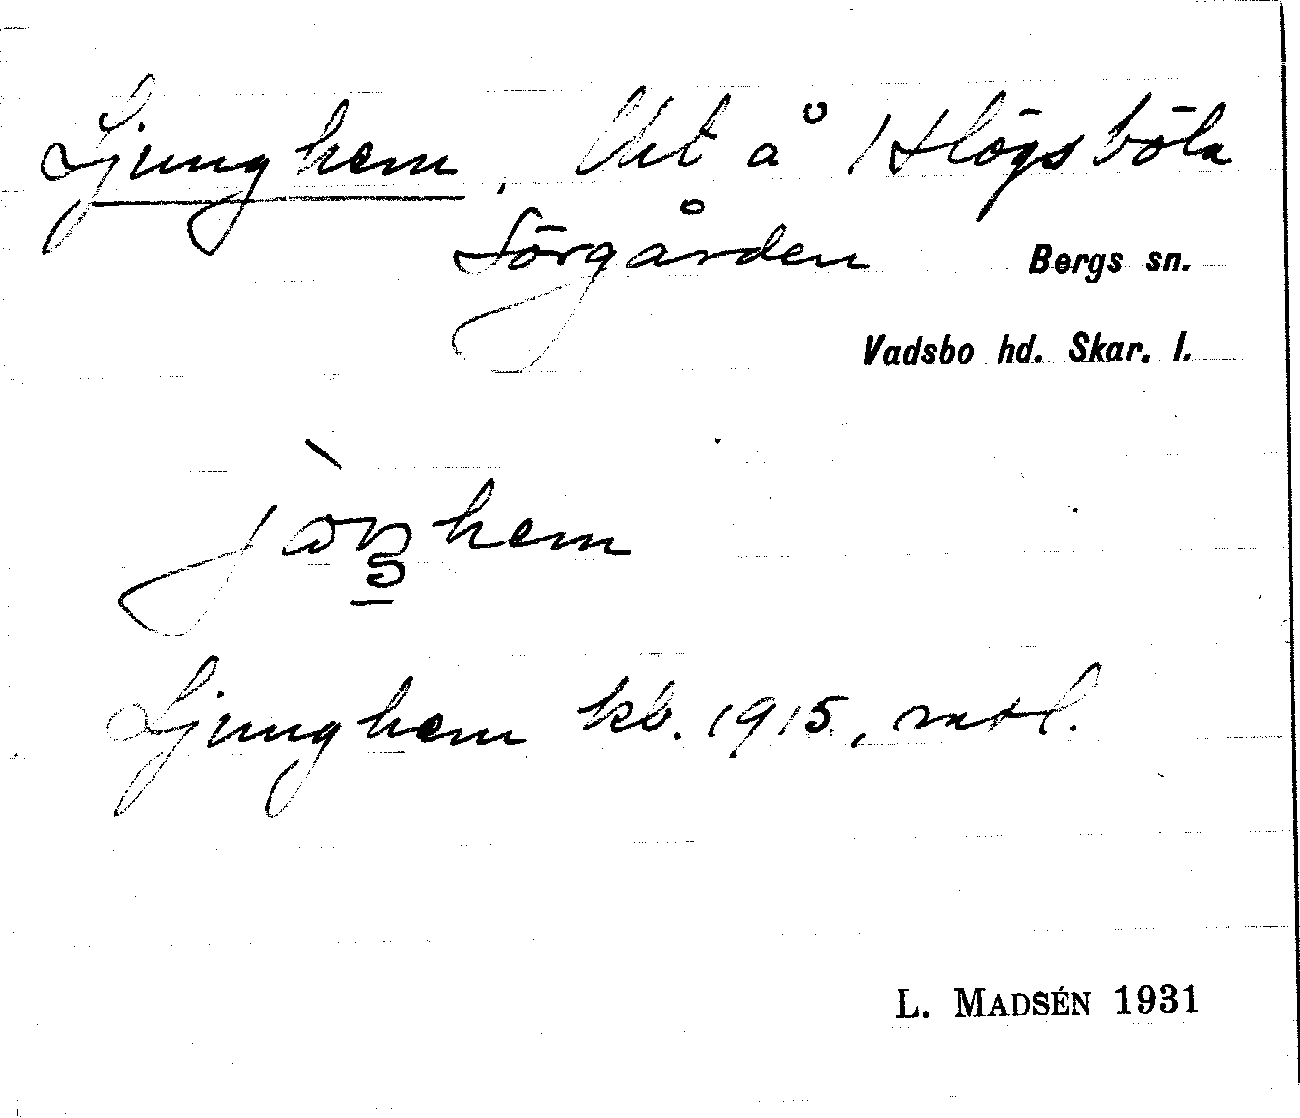 Ljunghem, Utå Högsböla
Sörgården Bergs sn.
Vadsbo hd. Skar. l.
Ljunghem kb. 1915, mtl.
L. MADSÉN 1931